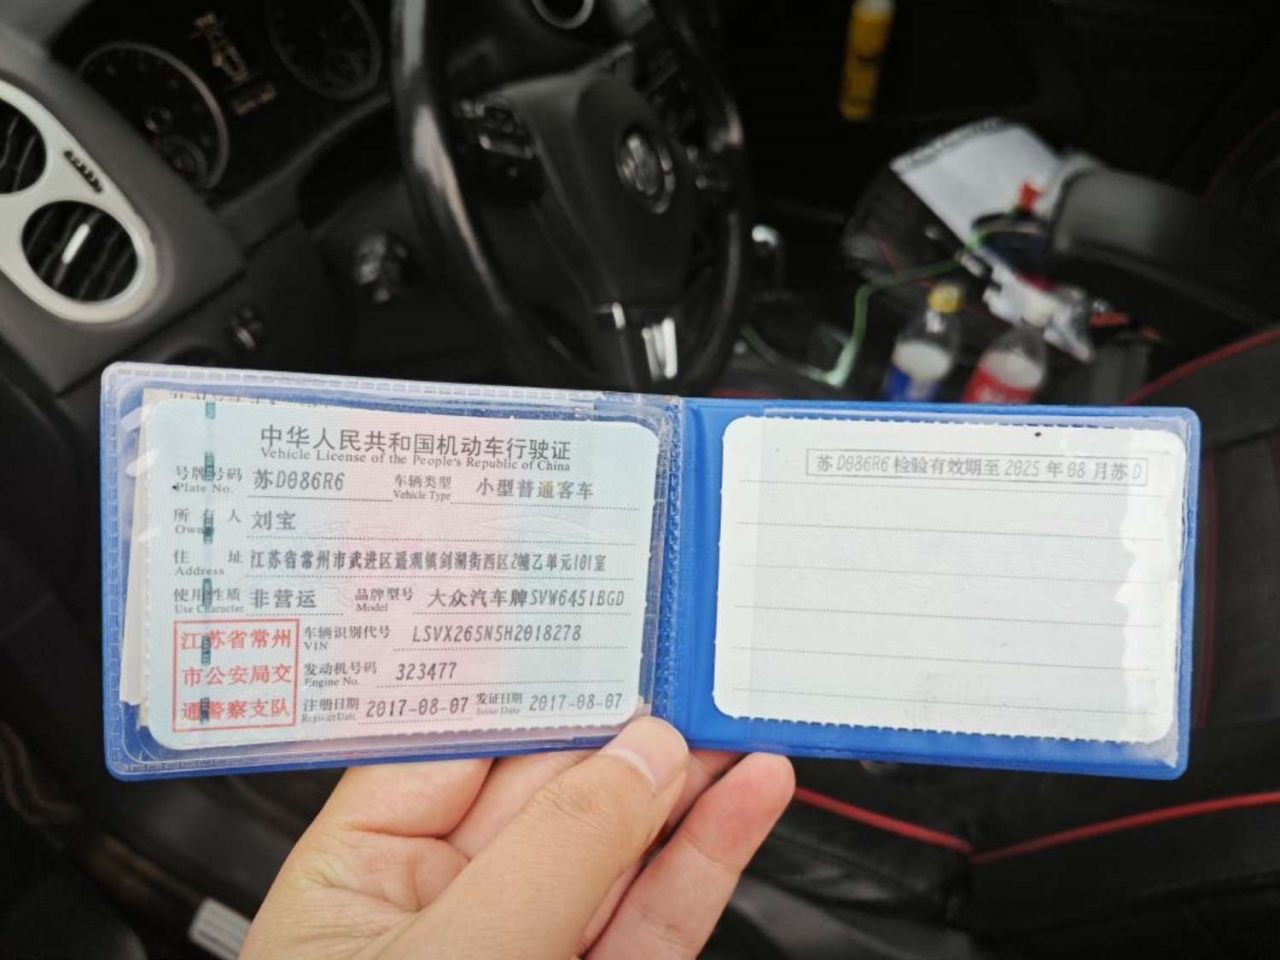 中华人民共和国机动车行驶证
Vehicle License of the People's Republic of China
号牌号码 苏D086R6 车辆类型 小型普通客车
Plate No. Vehicle Type
所有人 刘宝
Owner
住址 江苏省常州市武进区遥观镇剑湖街西区2幢乙单元101室
Address
使用性质 非营运 品牌型号 大众汽车牌SVW6451BGD
Use Character Model
江苏省常州 车辆识别代号 LSVX265N5H2018278
VIN
市公安局交 发动机号码 323477
Engine No.
通警察支队 注册日期 2017-08-07 发证日期 2017-08-07
Register Date Issue Date
苏D086R6检验有效期至2025年08月苏D